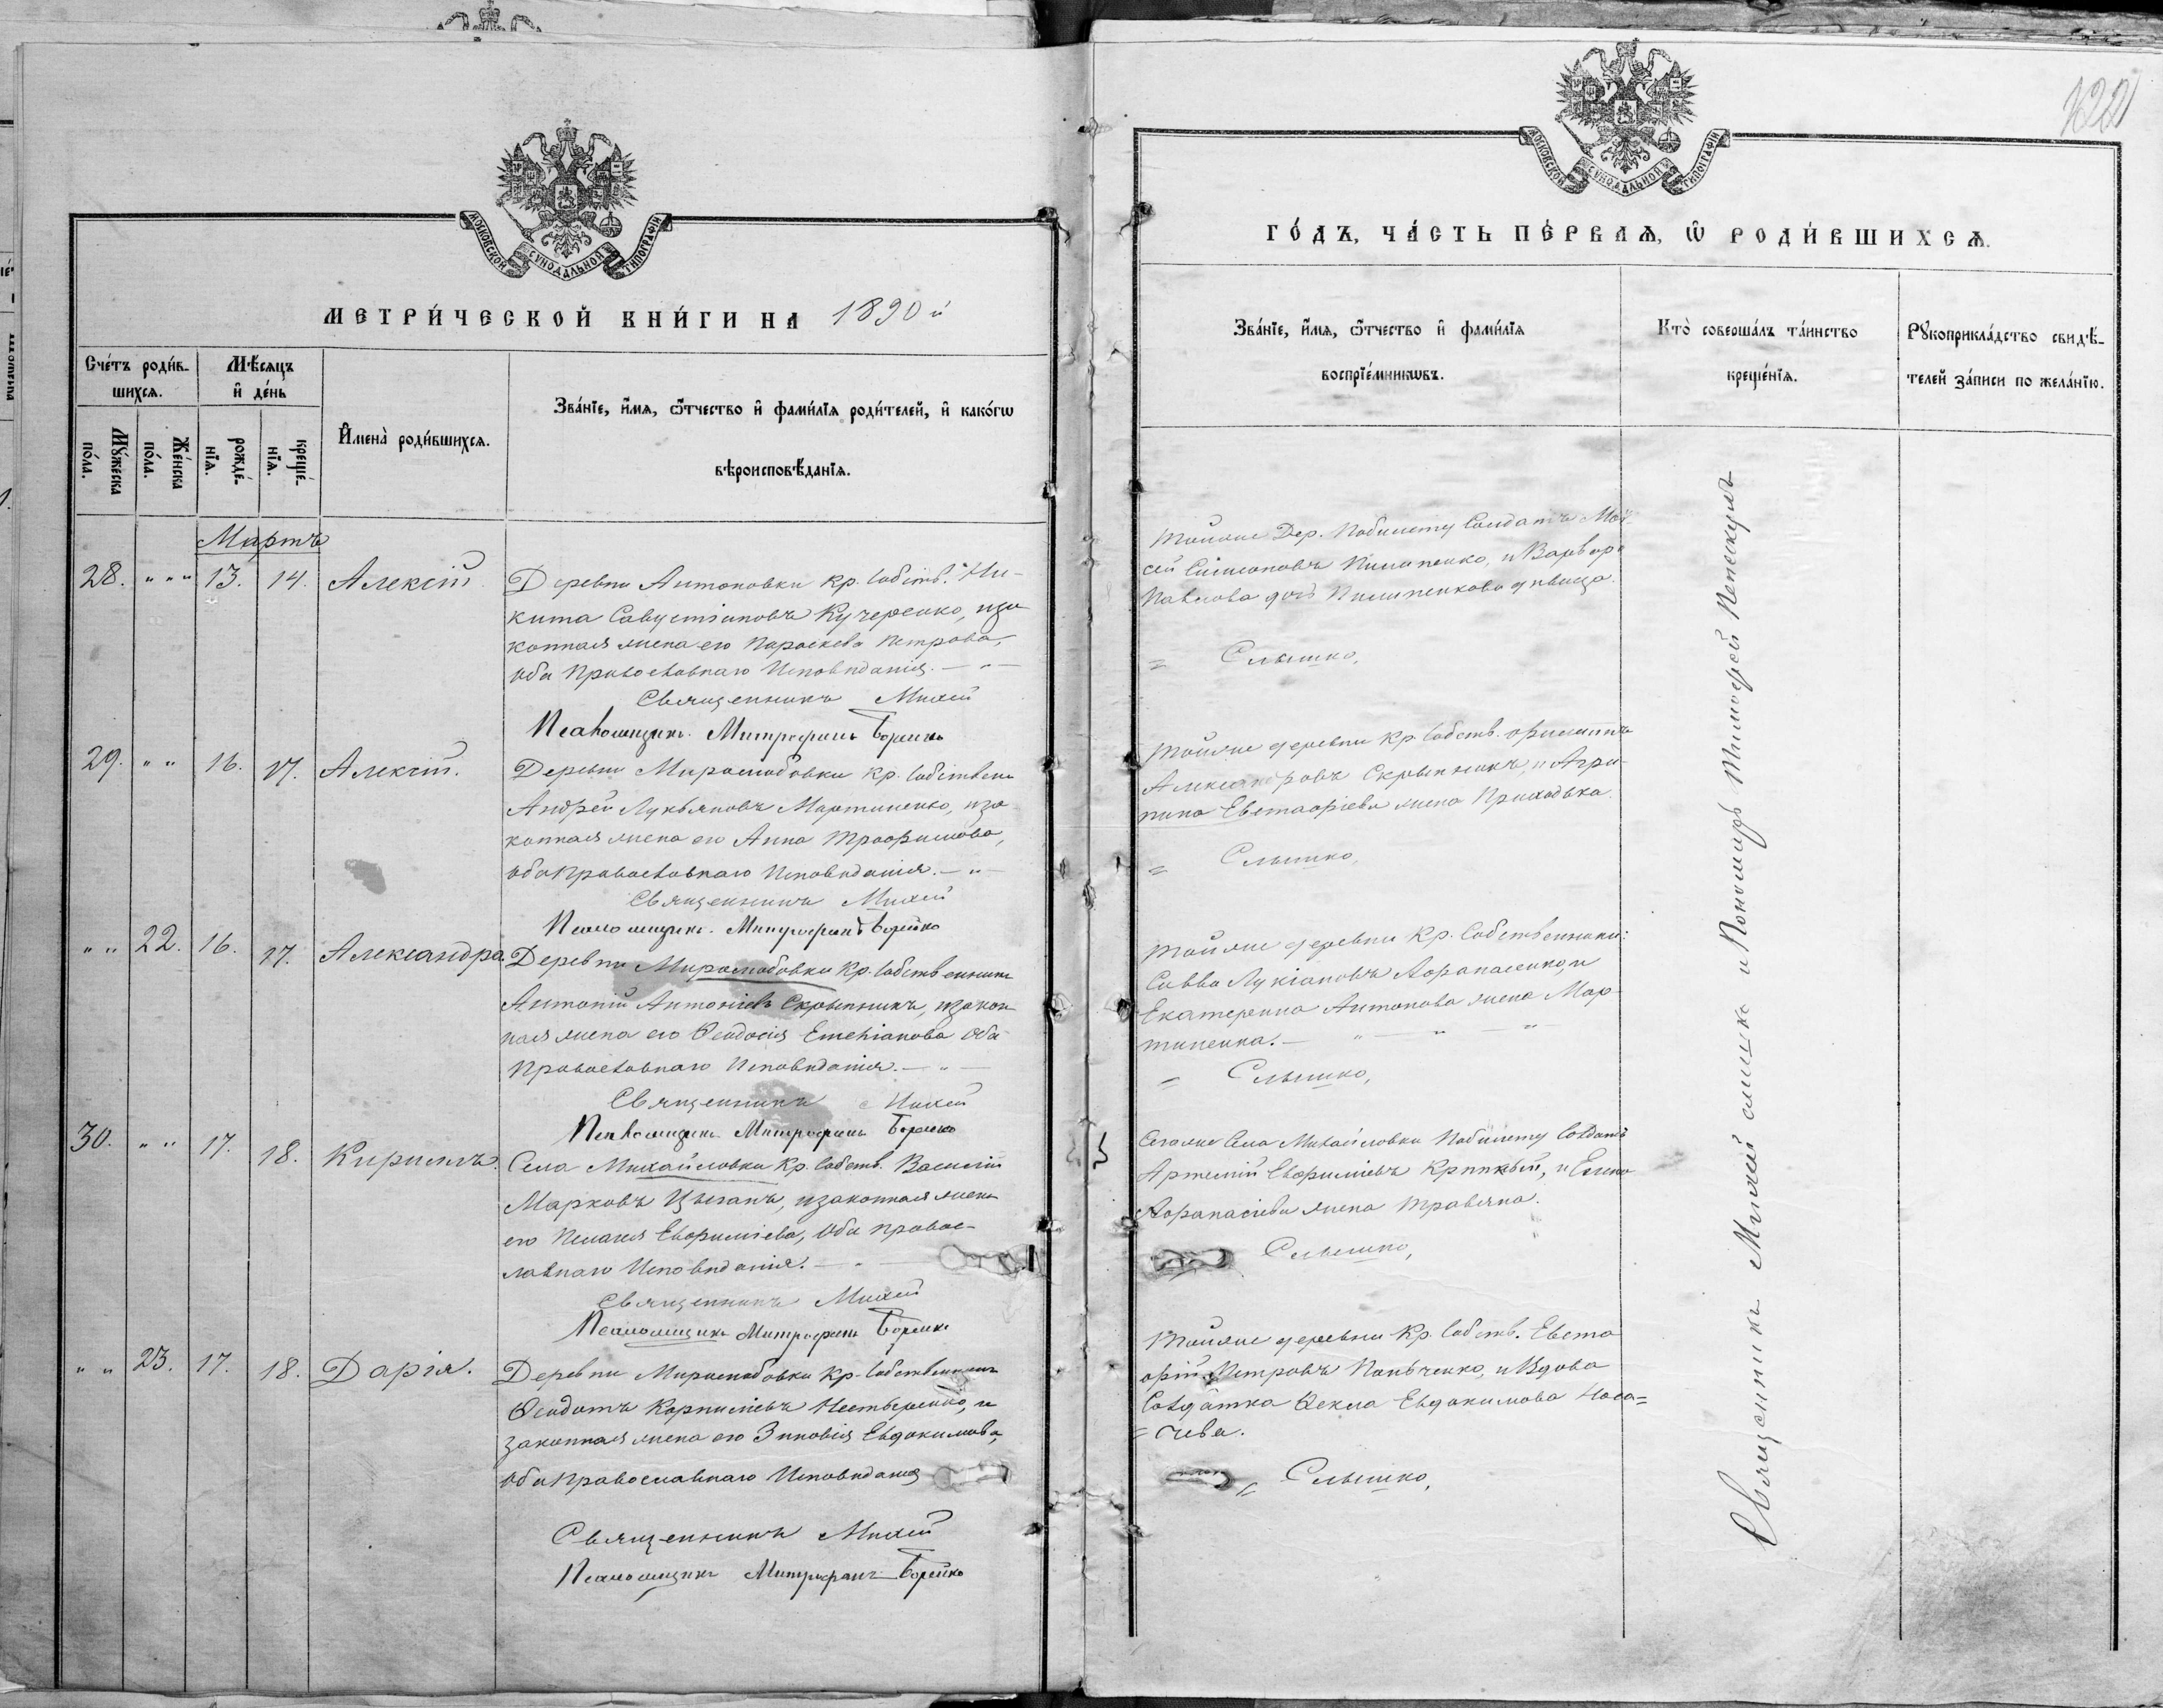 МОСКОВСКОЙ СУНОДАЛЬНОЙ ТИПОГРАФІИ
МЕТРИ́ЧЕСКОЙ КНИ́ГИ НА 1890 й
Сче́тъ роди́в-
шихсѧ.
Мѣ́сѧцъ
и҆ де́нь
Мꙋ́жеска
по́ла.
Же́нска
по́ла.
рожде́-
нїѧ.
креще́-
нїѧ.
И҆мена̀ роди́вшихсѧ.
Зва́нїе, и҆́мѧ, ѻ҆́тчество и҆ фами́лїѧ роди́телей, и҆ како́гѡ
вѣроисповѣ́данїѧ.
Мартъ
28. " " " 13. 14. Алексій
Деревни Антоновки кр. собств. Ни-
кита Савустіановъ Кучеренко, иза
конная жена его Параскева Петрова,
оба Православнаго Исповѣданія. — " —
Священникъ Михей
Псаломщикъ Митрофанъ Борейко
29. " " 16. 17. Алексій.
Деревни Миролюбовки кр. собственн
Андрей Лукьяновъ Мартиненко, иза
конная жена его Анна Трофимова,
оба Православнаго Исповѣданія. — " —
Священникъ Михей
Псаломщикъ Митрофанъ Борейко
" " 22. 16. 17. Александра.
Деревни Миролюбовки кр. собственникъ
Антоній Антоніевъ Скрыпникъ, изакон
ная жена его Ѳеодосія Емельянова оба
Православнаго Исповѣданія. — " —
Священникъ Михей
Псаломщикъ Митрофанъ Борейко
30. " " 17. 18. Кириллъ.
Села Михайловки кр. собств. Василій
Марковъ Цыганъ, изаконная жена
его Пелагія Евфиміева, оба правос-
лавнаго Исповѣданія. — " —
Священникъ Михей
Псаломщикъ Митрофанъ Борейко
" " 23. 17. 18. Дарія.
Деревни Миролюбовки кр. собственникъ
Ѳеодотъ Корниліевъ Нестеренко, и
законная жена его Зиновія Евдокимова,
оба Православнаго Исповѣданія
Священникъ Михей
Псаломщикъ Митрофанъ Борейко
МОСКОВСКОЙ СУНОДАЛЬНОЙ ТИПОГРАФІИ
ГО́ДЪ, ЧА́СТЬ ПЕ́РВАѦ, Ѡ҆ РОДИ́ВШИХСѦ.
Зва́нїе, и҆́мѧ, ѻ҆́тчество и҆ фами́лїѧ
воспрїе́мникѡвъ.
Кто̀ соверша́лъ та́инство
креще́нїѧ.
Рꙋкоприкла́дство свидѣ́-
телей за́писи по жела́нїю.
тойже Дер. побилету Солдатъ Мой
сей Симоновъ Пилипенко, и Варвара
Павлова дочь Пилипенкова дѣвица.
= Слышко,
тойже деревни кр. собств. Филиппъ
Александровъ Скрыпникъ, и Агри-
пина Евстафіева жена Приходька.
= Слышко,
тойже деревни кр. Собственники:
Савва Лукіановъ Афанасенко, и
Екатерина Антонова жена Мар-
тиненка. — " — " — "
= Слышко,
Сегоже Села Михайловки побилету Солдатъ
Артемій Евфиміевъ, и Елена
Афанасіева жена Травяна.
Слышко,
тойже деревни кр. собств. Евста
фій Петровъ Панченко, и Вдова
Солдатка Ѳекла Евдокимова Носа=
= чева.
Слышко,
Священникъ Михей Слышко и Пономарь Тимофей